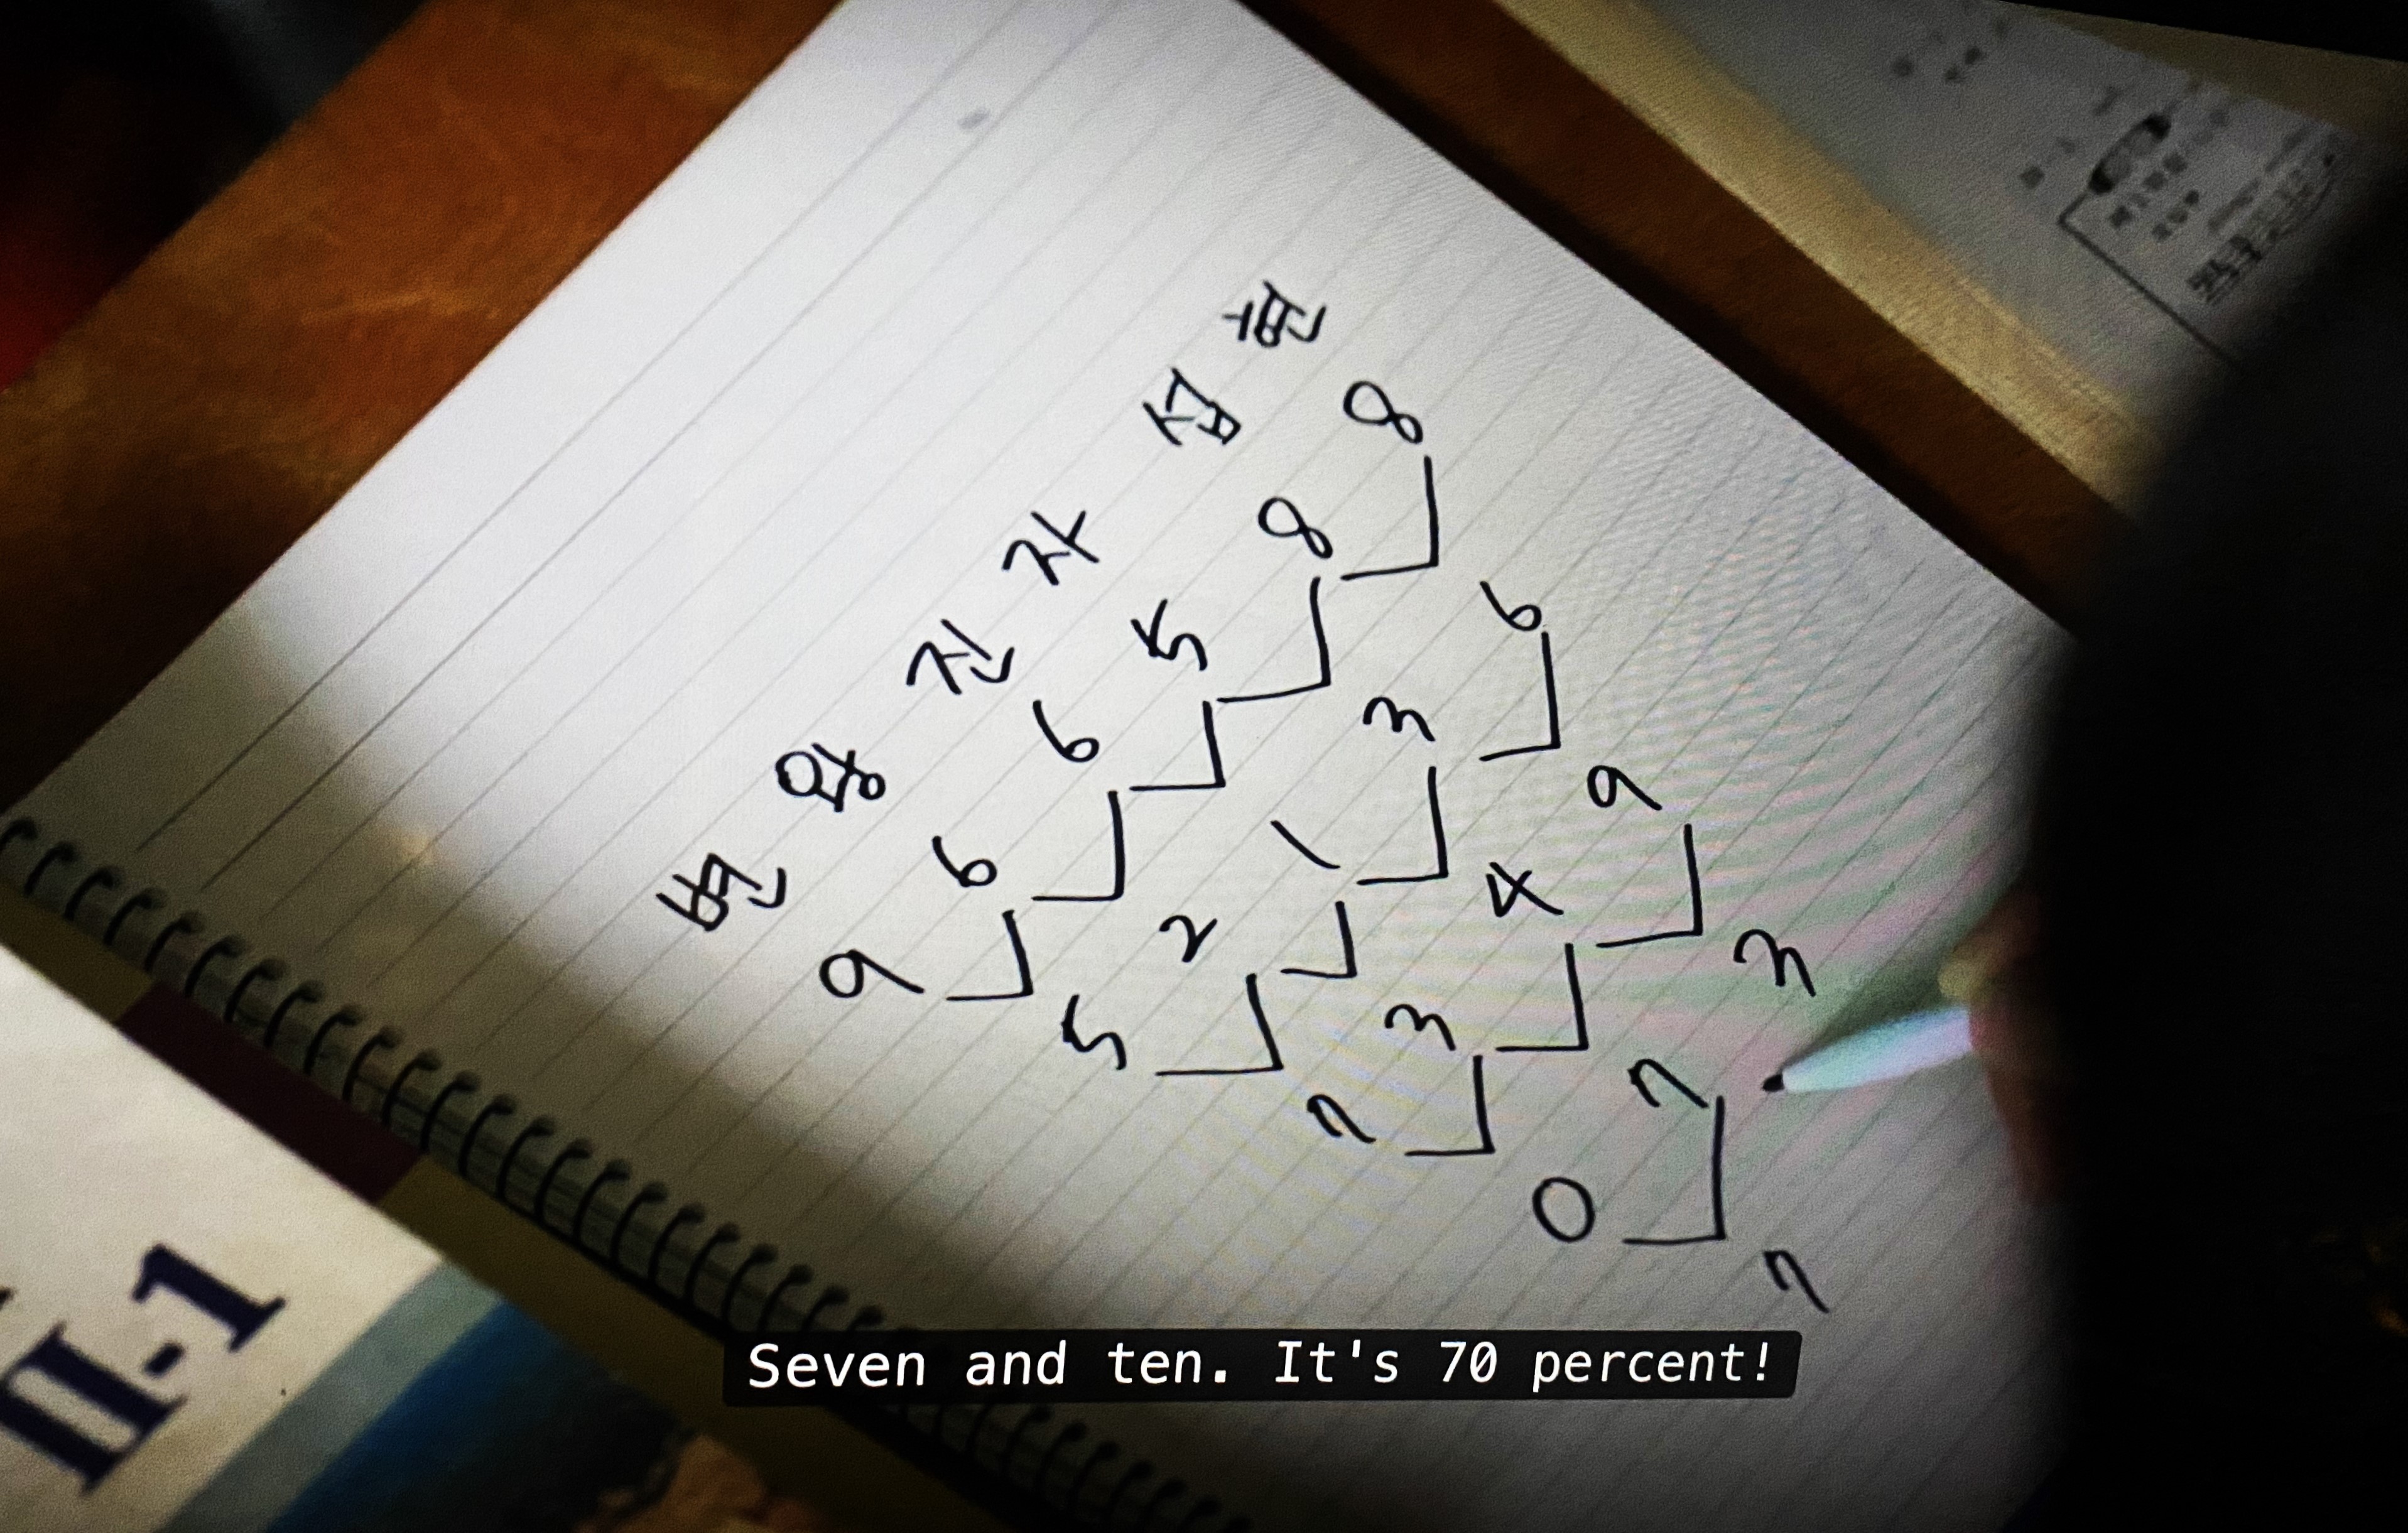 변 왕 진 자 섭 현
9 6 6 5 8 8
5 2 1 3 6
7 3 4 9
0 7 3
7
II-1
Seven and ten. It's 70 percent!